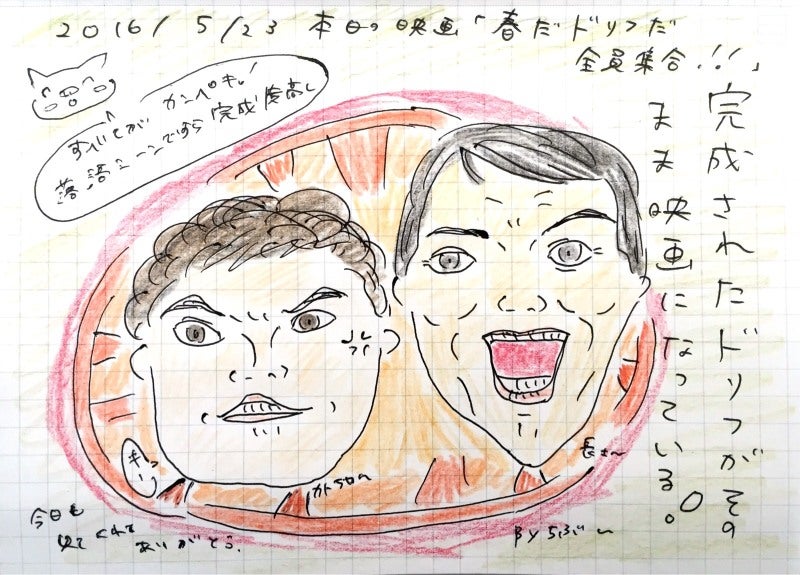 2016/5/23 本日の映画「春だドリフだ
全員集合!!」
すべてが カンペキ!
落語シーンですら完成度高し
完成されたドリフがその
まま映画になっている。
キッ
カトちゃ〜
長さ〜
今日も
見てくれて
ありがとう.
By ちぶ〜